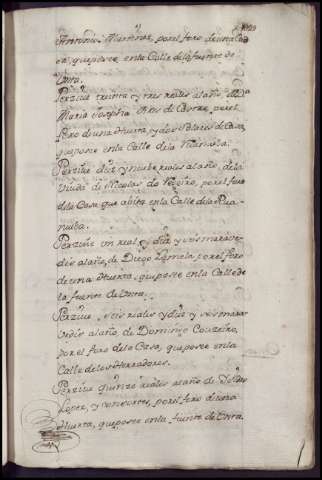 Antonio Martinez, por el foro de una Ca
sa, que posee en la Calle de la fuente de
Perzive treinta y tres reales al año, de D.ª
Maria Josepha
foro de una Huerta, y dos Solares de Casa,
que posee en la Calle de la
Perzive diez y nuebe reales al año, de la
Viuda de Nicolas do por el foro
de la Casa que abita en la Calle de la Rua
nueba.
Perzive un real y diez y seis marave
dis al año, de Diego por el foro
de una Huerta, que posee en la Calle de
la fuente de
Perzive, seis reales y diez y seis marav
vedis al año, de Domingo Couzeiro,
por el foro de la Casa, que posee en la
Calle de los Herradores.
Perzive quinze reales al año de
Lopez, y consortes, por el foro de una
Huerta, que posee en la fuente de